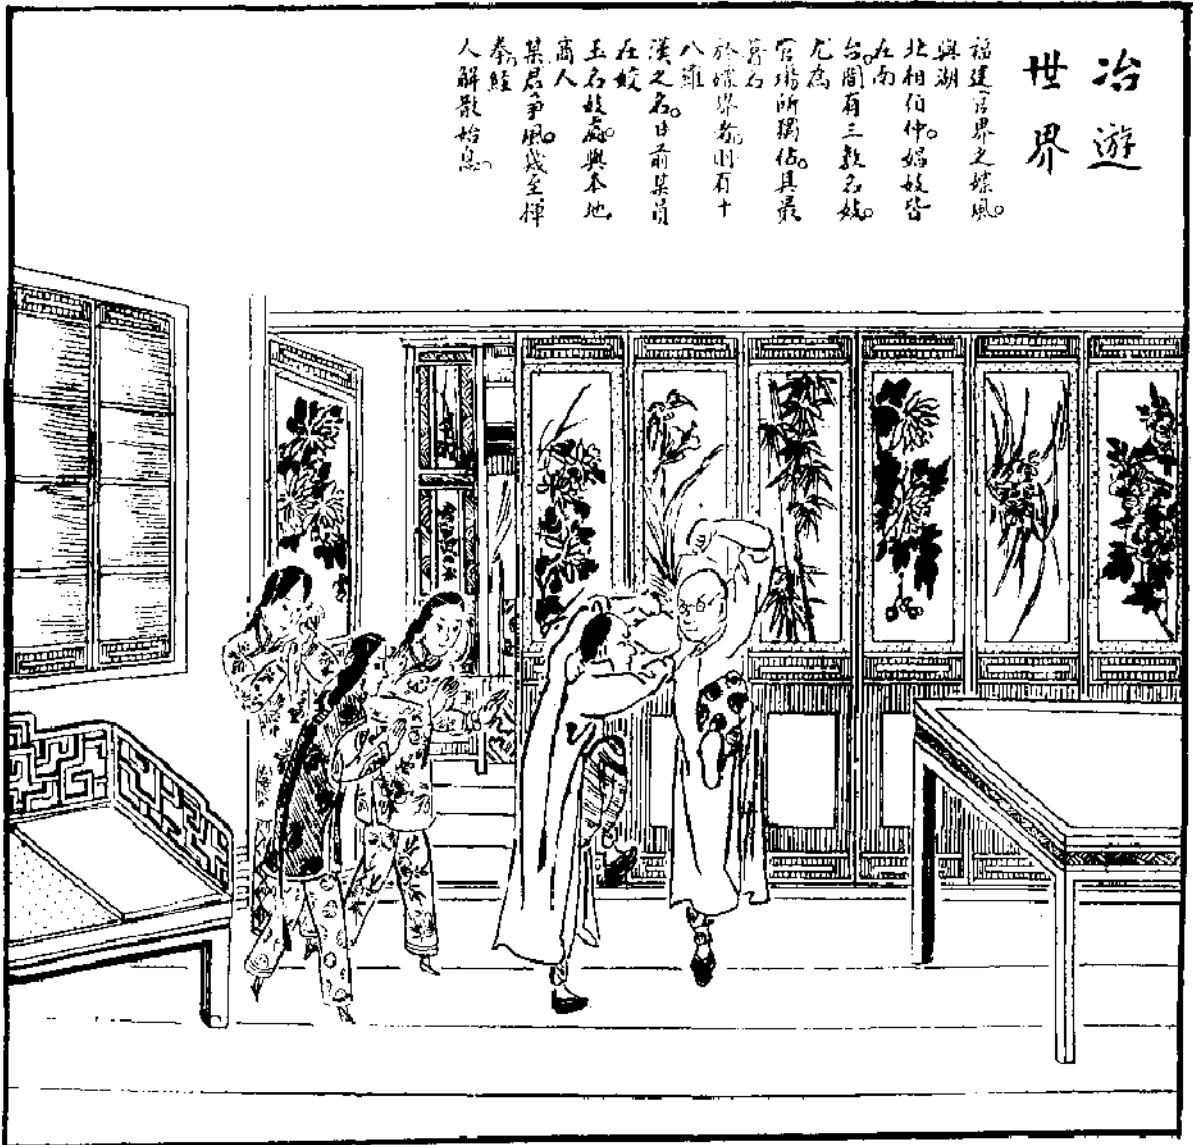 冶遊
世界
福建官界之嫖風。
與湖
北相伯仲。娼妓皆
在南
台。間有三數名妓。
尤為
官場所獨佔。其最
著名
於嫖界者。則有十
八羅
漢之名。日前某員
在姣
玉名妓處。與本地
商人
某君爭風。幾至揮
拳。經
人解散始息。